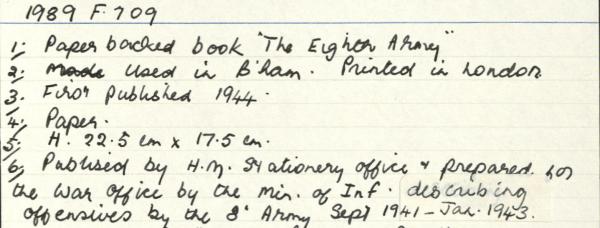 1989 F.709
1; Paper backed book "The Eighth Army"
2; Used in B'ham. Printed in London
3. First Published 1944.
4; Paper.
5; H. 22.5 cm x 17.5 cm.
6; Publised by H.M. Stationery office & prepared for
the War Office by the Min. of Inf. describing
offensives by the 8' Army Sept 1941 - Jan. 1943.